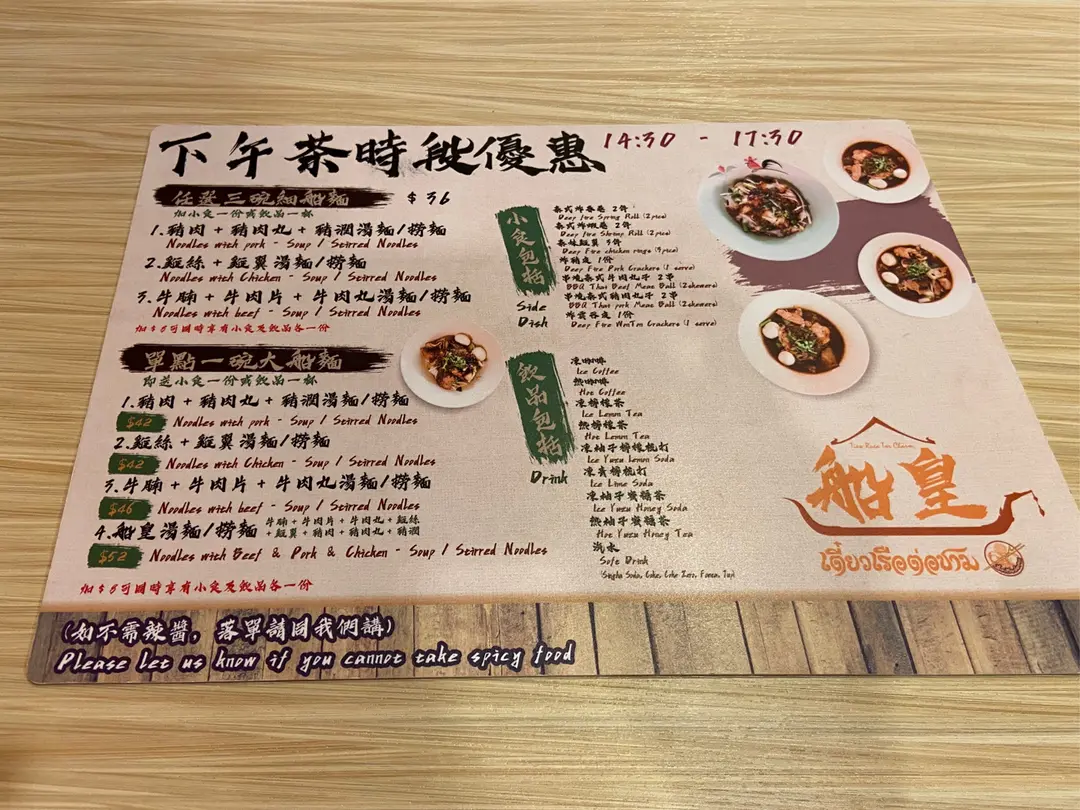 下午茶時段優惠 14:30 - 17:30
任選三碗細船麵 $36
加小食一份或飲品一杯
1.豬肉 + 豬肉丸 + 豬潤湯麵/撈麵
Noodles with pork - Soup / Stirred Noodles
2.雞絲 + 雞翼湯麵/撈麵
Noodles with Chicken - Soup / Stirred Noodles
3.牛腩 + 牛肉片 + 牛肉丸湯麵/撈麵
Noodles with beef - Soup / Stirred Noodles
加$6可同時享有小食及飲品各一份
單點一碗大船麵
即送小食一份或飲品一杯
1.豬肉 + 豬肉丸 + 豬潤湯麵/撈麵
$42 Noodles with pork - Soup / Stirred Noodles
2.雞絲 + 雞翼湯麵/撈麵
$42 Noodles with Chicken - Soup / Stirred Noodles
3.牛腩 + 牛肉片 + 牛肉丸湯麵/撈麵
$46 Noodles with beef - Soup / Stirred Noodles
4.船皇湯麵/撈麵
牛腩 + 牛肉片 + 牛肉丸 + 雞絲
+ 雞翼 + 豬肉 + 豬肉丸 + 豬潤
$52 Noodles with Beef & Pork & Chicken - Soup / Stirred Noodles
加$6可同時享有小食及飲品各一份
小食包括
Side
Dish
泰式炸春卷 2件
Deep fire Spring Roll (2pice)
泰式炸蝦卷 2件
Deep fire Shrimp Roll (2pice)
泰妹雞翼 3件
Deep Fire chicken rings (3pice)
炸豬皮 1份
Deep Fire Pork Crackers (1 serve)
串燒泰式牛肉丸子 2串
BBQ Thai Beef Meat Ball (2skewers)
串燒泰式豬肉丸子 2串
BBQ Thai pork Meat Ball (2skewers)
炸雲吞皮 1份
Deep Fire WonTon Crackers (1 serve)
飲品包括
Drink
凍咖啡
Ice Coffee
熱咖啡
Hot Coffee
凍檸檬茶
Ice Lemon Tea
熱檸檬茶
Hot Lemon Tea
凍柚子檸檬梳打
Ice Yuzu Lemon Soda
凍青檸梳打
Ice Lime Soda
凍柚子蜜糖茶
Ice Yuzu Honey Soda
熱柚子蜜糖茶
Hot Yuzu Honey Tea
汽水
Soft Drink
Singha Soda, Coke, Coke Zero, Fanta,
船皇
เตี๋ยวเรือต่อชาม
(如不需辣醬，落單請同我們講)
Please let us know if you cannot take spicy food